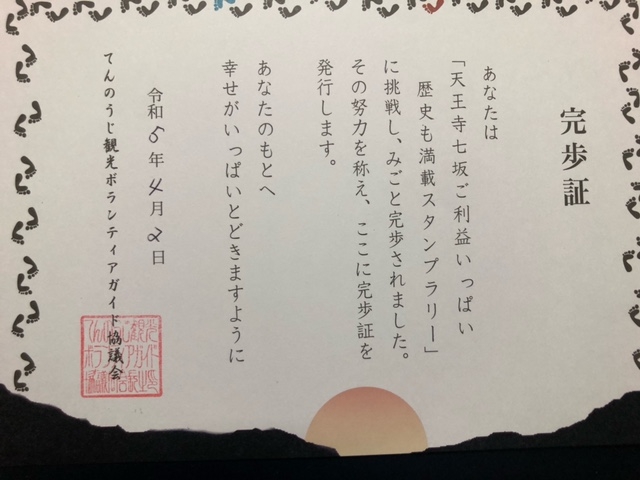 完歩証
あなたは
「天王寺七坂ご利益いっぱい
歴史も満載スタンプラリー」
に挑戦し、みごと完歩されました。
その努力を称え、ここに完歩証を
発行します。
あなたのもとへ
幸せがいっぱいとどきますように
令和5年4月2日
てんのうじ観光ボランティアガイド協議会